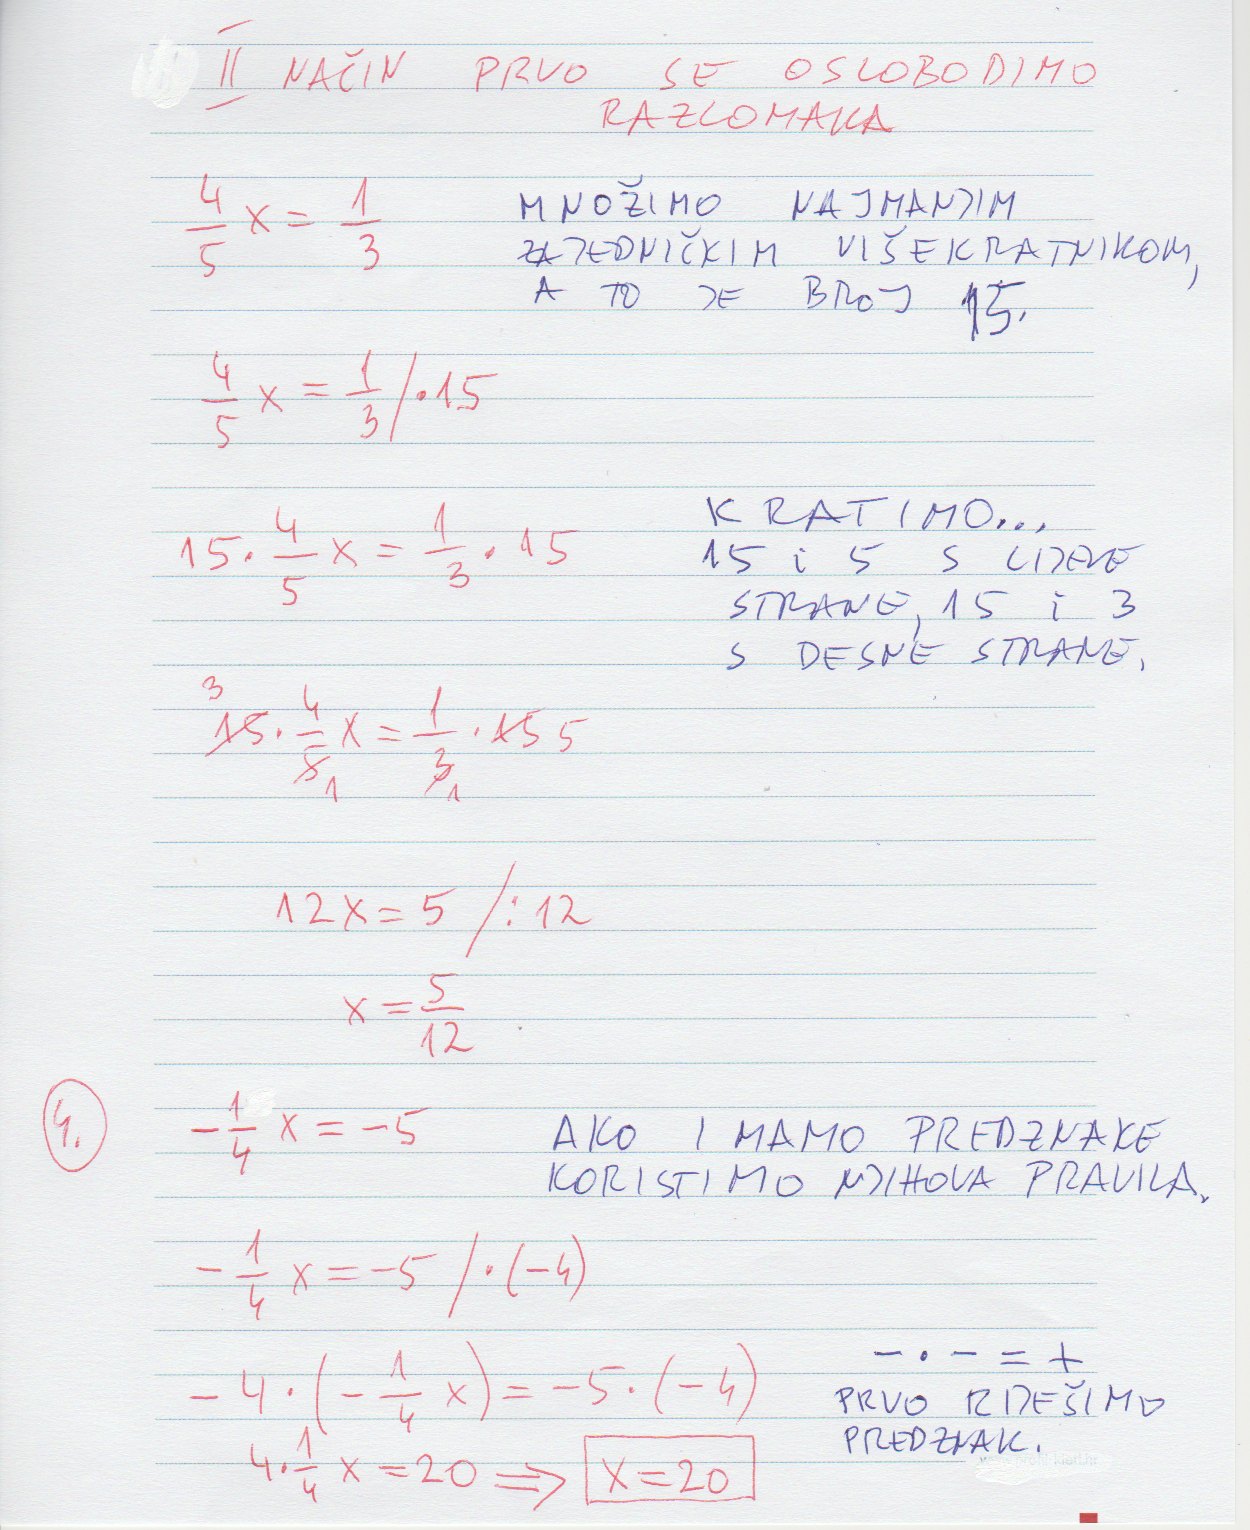 II NAČIN PRVO SE OSLOBODIMO
RAZLOMAKA
4/5 x = 1/3
MNOŽIMO NAJMANJIM
ZAJEDNIČKIM VIŠEKRATNIKOM,
A TO JE BROJ 15.
4/5 x = 1/3 / · 15
15 · 4/5 x = 1/3 · 15
KRATIMO...
15 i 5 S LIJEVE
STRANE, 15 i 3
S DESNE STRANE.
3
15 · 4/5 x = 1/3 · 15 5
1 1
12x = 5 / : 12
x = 5/12
4.
- 1/4 x = -5
AKO IMAMO PREDZNAKE
KORISTIMO NJIHOVA PRAVILA.
- 1/4 x = -5 / · (-4)
-4 · (- 1/4 x) = -5 · (-4)
- · - = +
PRVO RIJEŠIMO
PREDZNAK.
4 · 1/4 x = 20 ⇒ x = 20